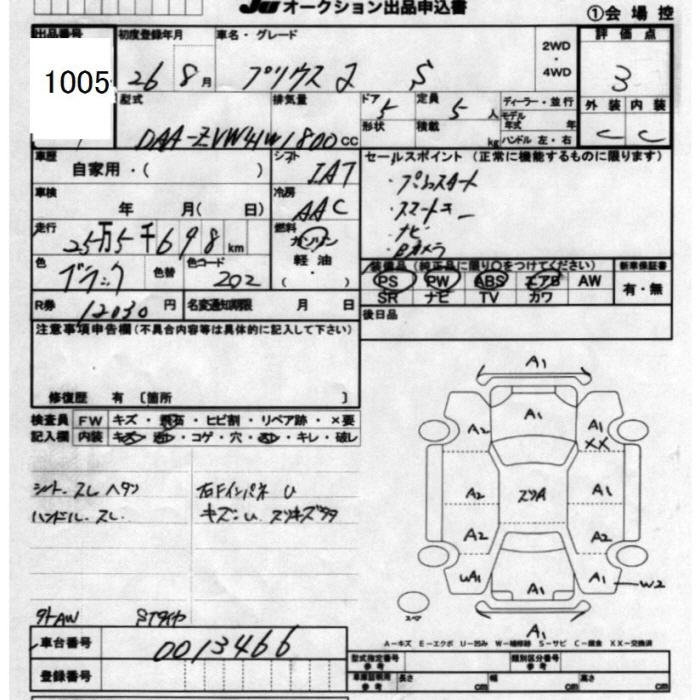 JU オークション出品申込書
①会場控
出品番号 初度登録年月 車名・グレード 評価点
1005 26年 8月 プリウスα S 2WD・4WD 3
外装 内装
C C
型式 排気量 ドア 5 定員 5人 ディーラー・並行
DAA-ZVW41W 1800cc 形状 積載 kg モデル年式 年
ハンドル 左・右
車歴 自家用・( ) シフト IAT
セールスポイント(正常に機能するものに限ります)
・プッシュスタート
・スマートキー
・ナビ
・Bカメラ
車検 年 月( 日) 冷房 AAC
走行 25万5千698km 燃料 ガソリン 軽油・( )
色 ブラック 色替 色コード 202
装備品(純正品に限り○をつけてください) 新車保証書
PS PW ABS エアB AW 有・無
SR ナビ TV カワ
R券 12030円 名変通知期限 月 日
後日品
注意事項申告欄(不具合内容等は具体的に記入して下さい)
修復歴 有 〔箇所 〕
検査員 FW キズ・飛石・ヒビ割・リペア跡・×要
記入欄 内装 キズ・・コゲ・穴・・キレ・破し
シート スレ ヘタリ 右FインパネU
ハンドル スレ キズ・U スリキズ
外AW STタイヤ
A1
A1
A2 A1
XX
A2 スリA A1
A2 A2
UA1 A1 A1 W2
スペア
A1
A-キズ E-エクボ U-凹み W-補修跡 S-サビ C-腐食 XX-交換済
車台番号 0013466
型式指定番号 参考 類別区分番号 参考
登録番号
車庫証明用 参考 長さ cm 幅 cm 高さ cm